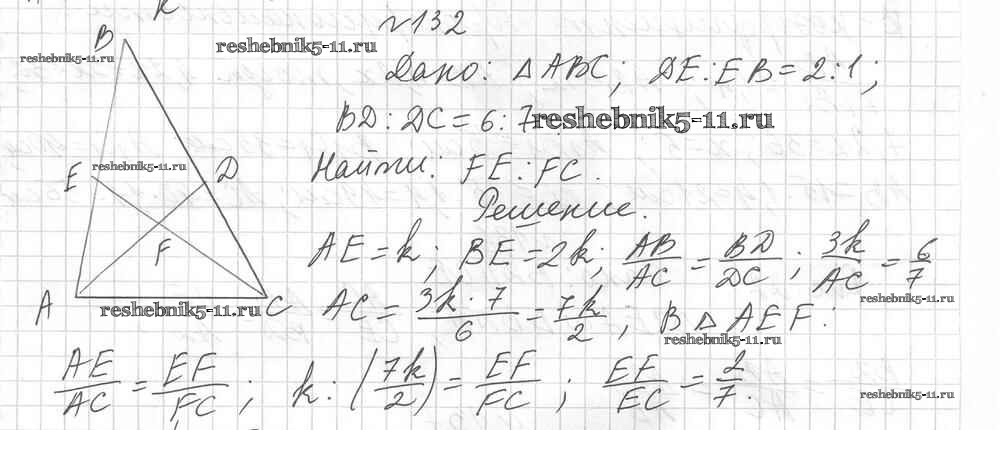 №132
B
reshebnik5-11.ru
reshebnik5-11.ru
Дано: △ABC; DE:EB=2:1;
BD:DC=6:7 reshebnik5-11.ru
E reshebnik5-11.ru D
Найти: FE:FC.
Решение.
F
AE=k; BE=2k; AB/AC=BD/DC; 3k/AC=6/7
reshebnik5-11.ru
A reshebnik5-11.ru C
AC=3k·7/6=7k/2, В △AEF:
reshebnik5-11.ru
AE/AC=EF/FC; k:(7k/2)=EF/FC; EF/EC=2/7.
reshebnik5-11.ru